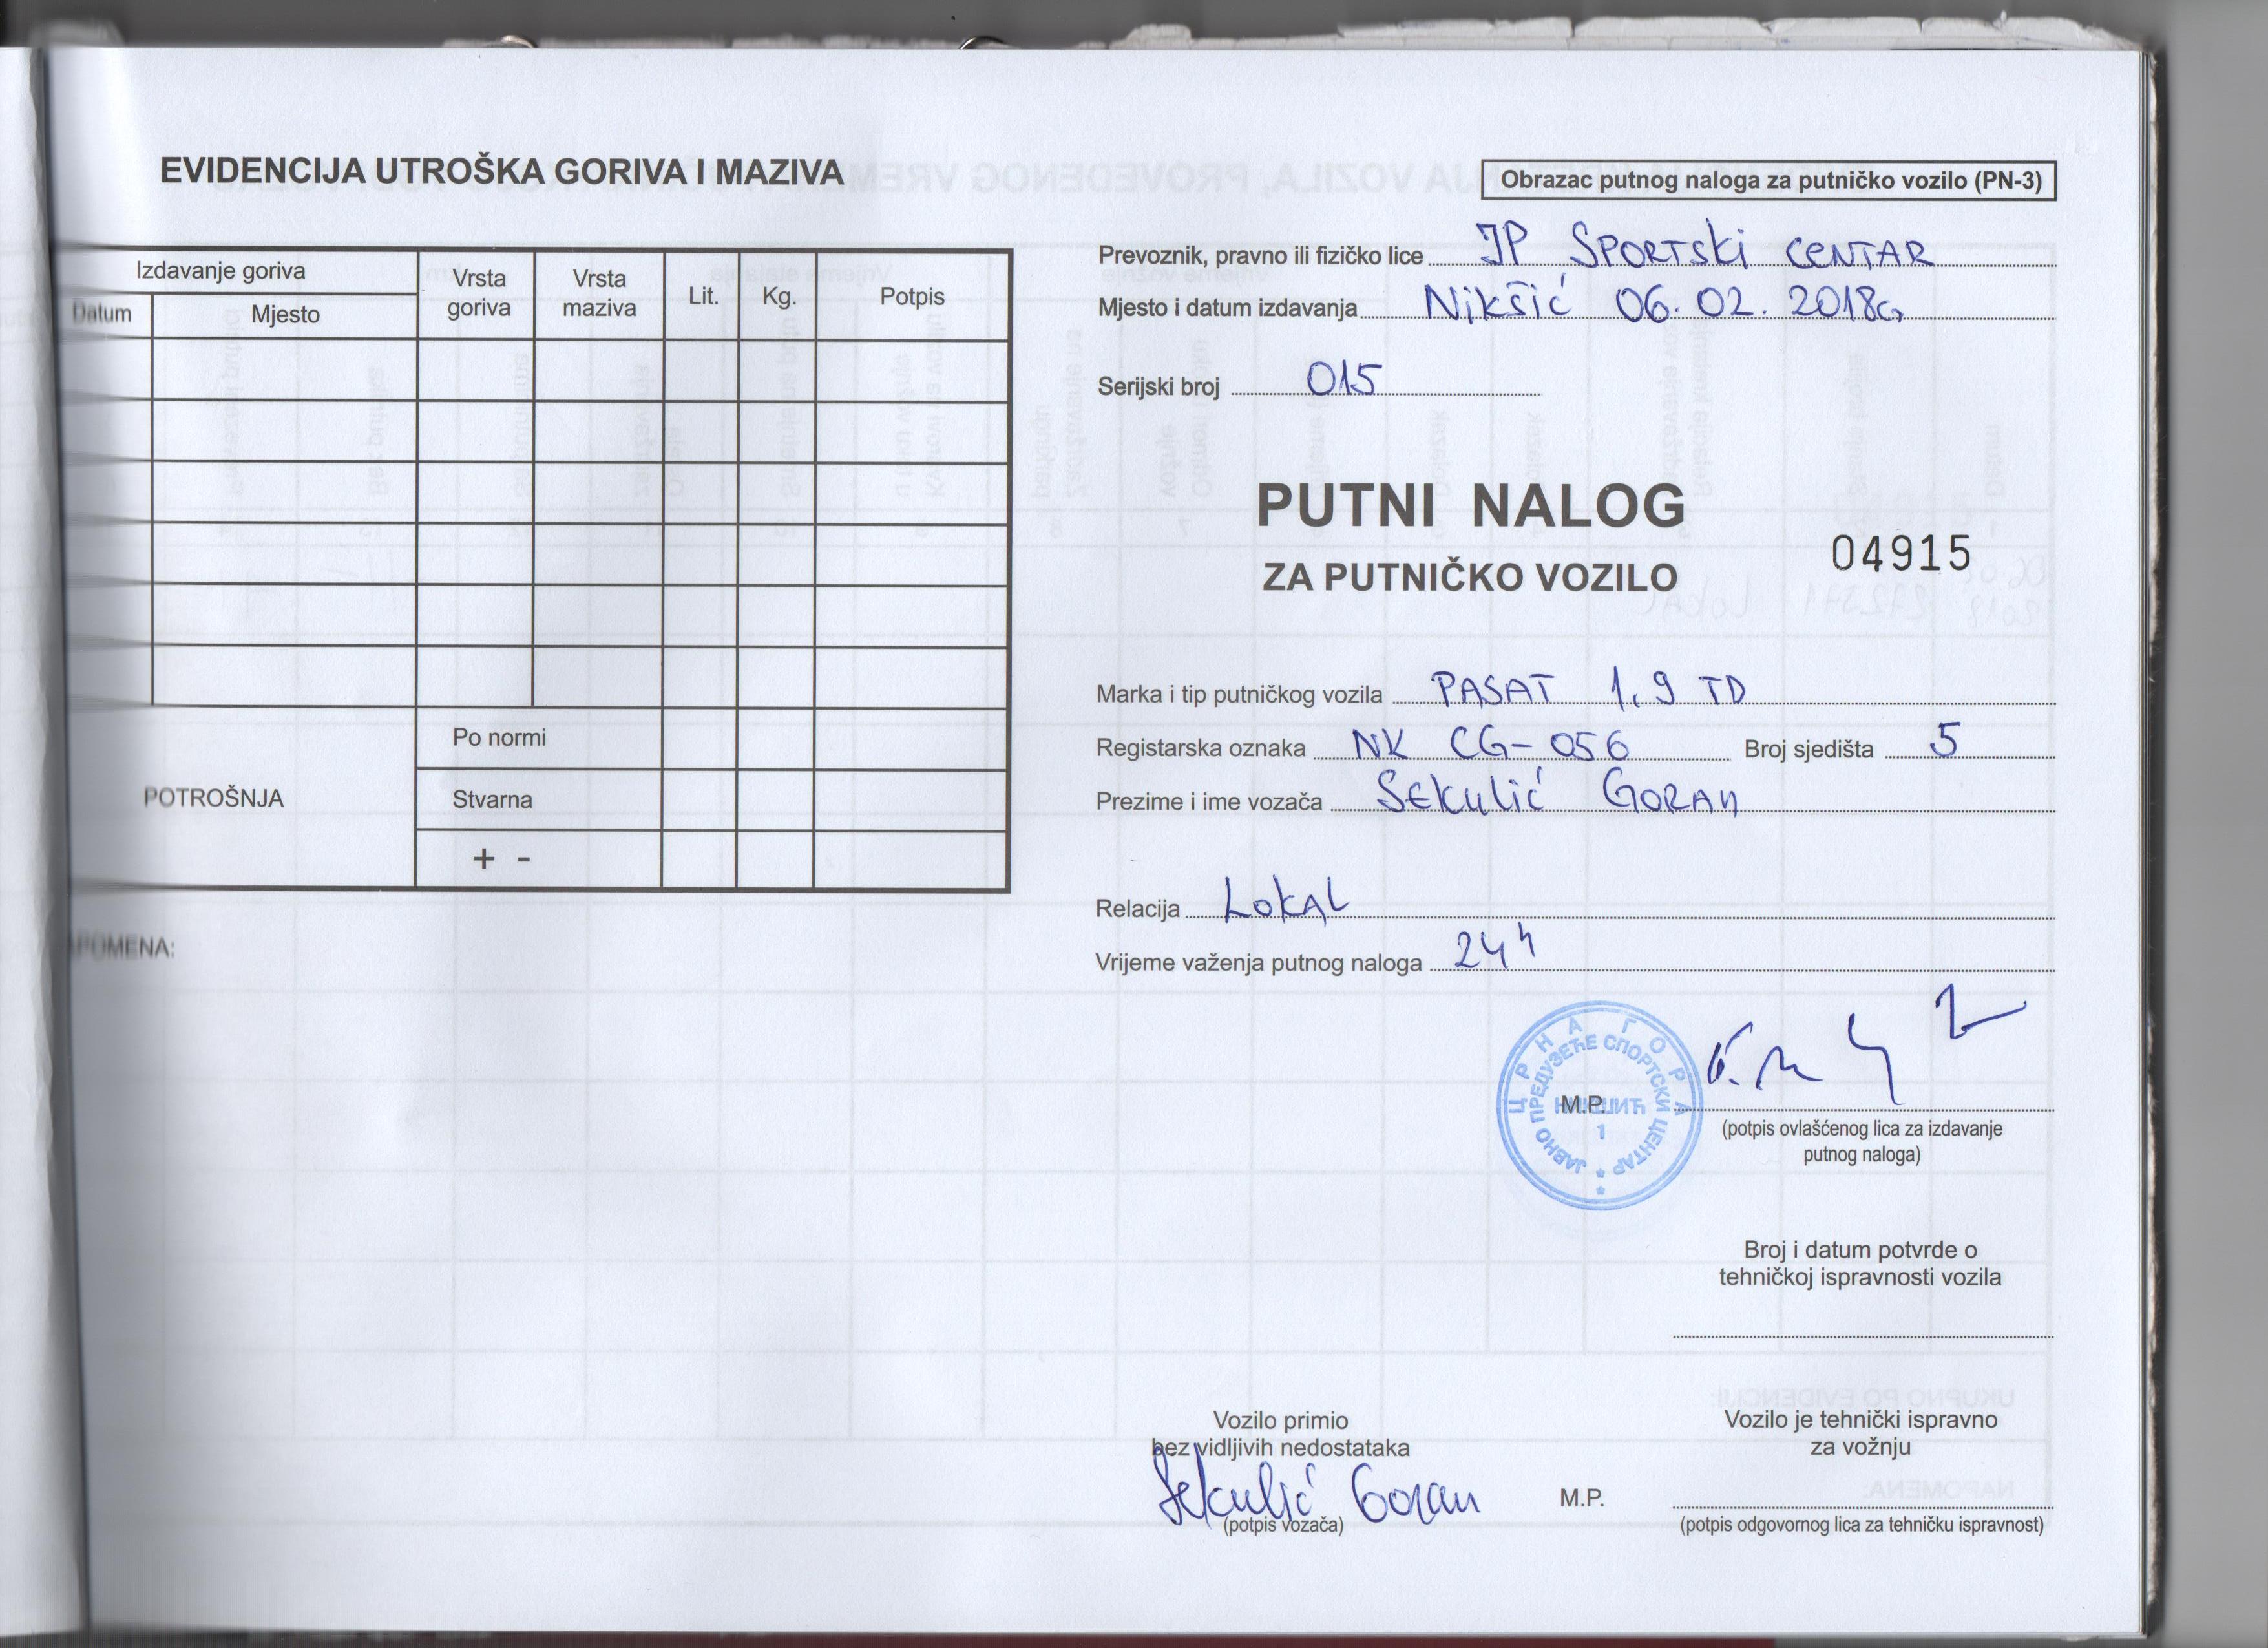 EVIDENCIJA UTROŠKA GORIVA I MAZIVA
Izdavanje goriva
Datum
Mjesto
Vrsta goriva
Vrsta maziva
Lit.
Kg.
Potpis
POTROŠNJA
Po normi
Stvarna
+ -
Obrazac putnog naloga za putničko vozilo (PN-3)
Prevoznik, pravno ili fizičko lice JP SPORTSKI CENTAR
Mjesto i datum izdavanja Nikšić 06.02.2018
Serijski broj 015
PUTNI NALOG
ZA PUTNIČKO VOZILO
04915
Marka i tip putničkog vozila PASAT 1.9 TD
Registarska oznaka NK CG-056 Broj sjedišta 5
Prezime i ime vozača Sekulić Goran
Relacija Lokal
Vrijeme važenja putnog naloga 24h
ЦРНА ГОРА
ЈАВНО ПРЕДУЗЕЋЕ СПОРТСКИ ЦЕНТАР
НИКШИЋ
1
M.P.
(potpis ovlašćenog lica za izdavanje
putnog naloga)
Broj i datum potvrde o
tehničkoj ispravnosti vozila
Vozilo primio
bez vidljivih nedostataka
Sekulić Goran
(potpis vozača)
M.P.
Vozilo je tehnički ispravno
za vožnju
(potpis odgovornog lica za tehničku ispravnost)